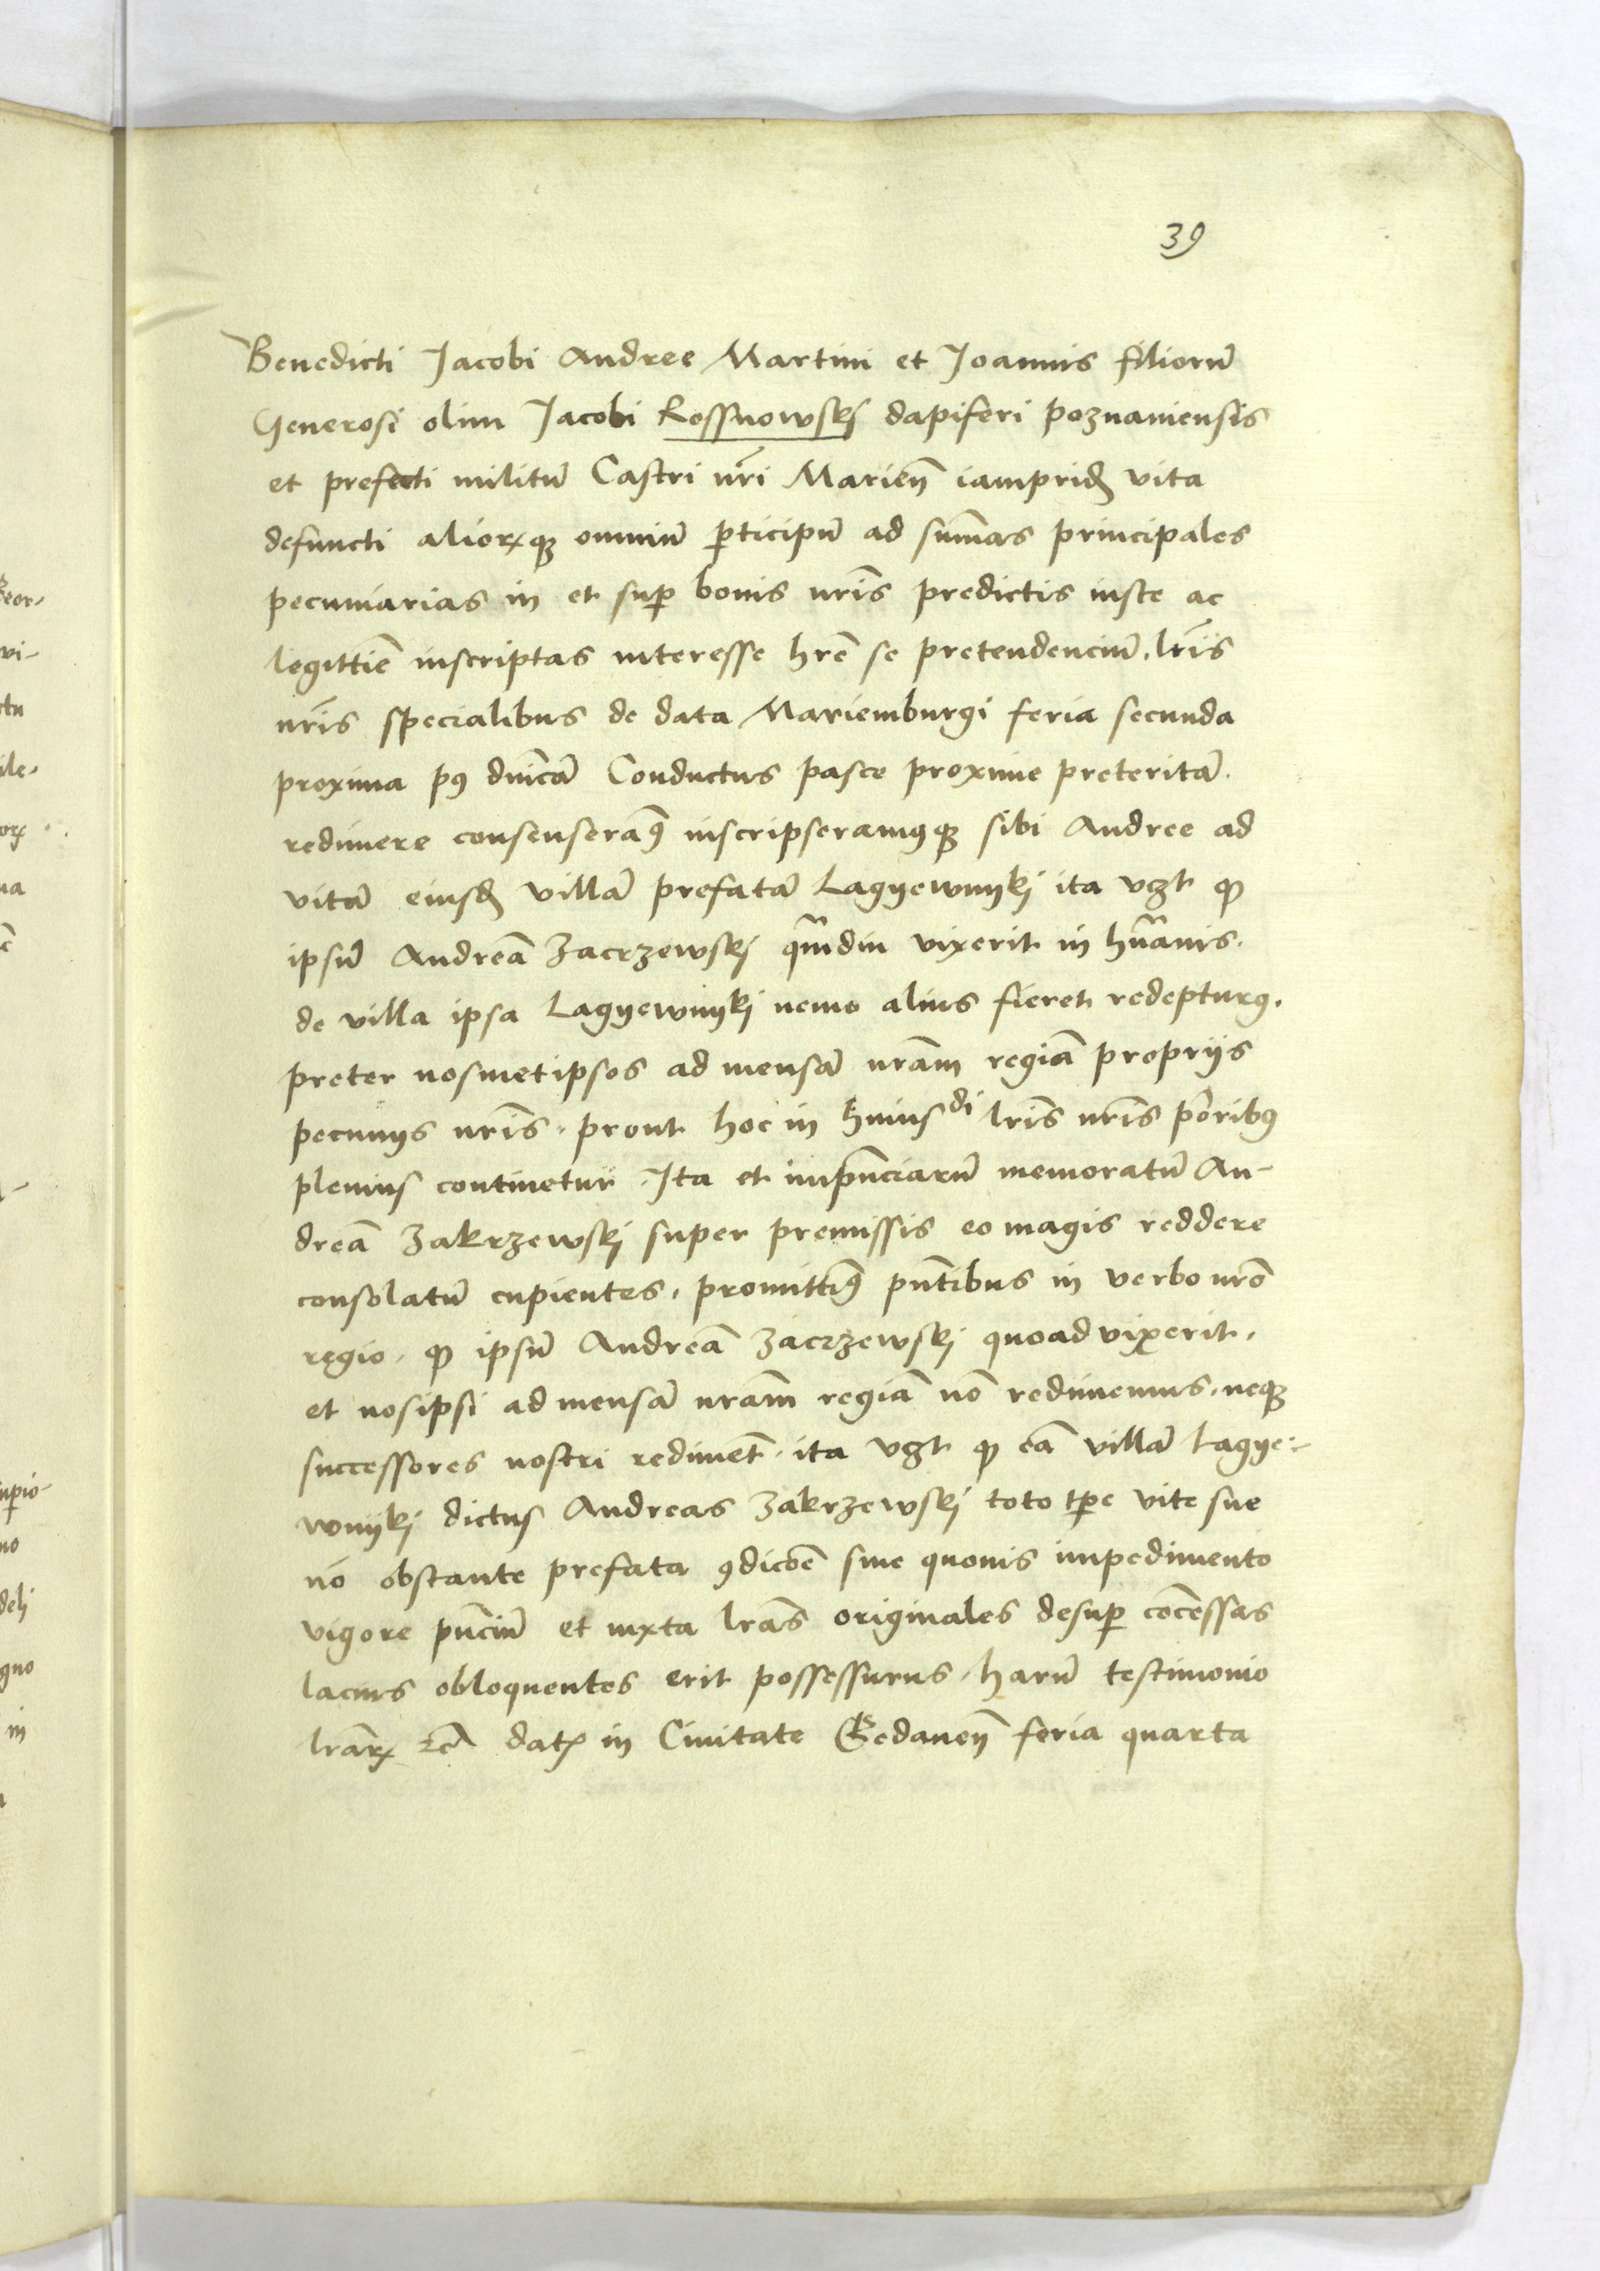 39
Benedicti Jacobi Andree Martini et Joannis filiorū
Generosi olim Jacobi Rossnowskj dapiferi poznaniensis
et prefecti militū Castri nr̄i Marien̄ iampridē vita
defuncti aliorꝝqꝫ omniū ꝑticipū ad sum̄as principales
pecuniarias in et suꝑ bonis nr̄is predictis iuste ac
legittīe inscriptas interesse hr̄e se pretendenciū, lr̄is
nr̄is specialibus de data Mariemburgi feria secunda
proxima pꝰ dnīcā Conductus pasce proxime preteritā.
redimere consenserāꝰ inscripseramꝰqꝫ sibi Andree ad
vitā eiusdē villā prefatā Lagyewnykj ita vꝫt ꝙ
ipsū Andreā Zacrzewskj qm̄diu vixerit in hūanis.
de villa ipsa Lagyewnykj nemo alius fieret redepturꝰ.
preter nosmetipsos ad mensā nrām regiā proprijs
pecunijs nr̄is. prout hoc in huiusdi lr̄is nr̄is ꝑoribꝰ
plenius continetur. Ita et inpn̄ciarū memoratū An-
dreā Zakrzewskj super premissis eo magis reddere
consolatū cupientes, promittim̄ꝰ pn̄tibus in verbo nr̄o
regio, ꝙ ipsū Andreā Zacrzewskj quoad vixerit,
et nosipsi ad mensā nrām regiā nō redimemus, neqꝫ
successores nostri rediment̄. ita vꝫt ꝙ eā villā Lagye-
wnykj dictus Andreas Zakrzewskj toto tꝑe vite sue
nō obstante prefata ꝯdicōe sine quouis impedimento
vigore pn̄ciū et iuxta lrās originales desuꝑ cōcessas
lacius obloquentes erit possessurus. harū testimonio
lrārꝝ etc̄ datꝭ in Ciuitate Gedanen̄ feria quarta